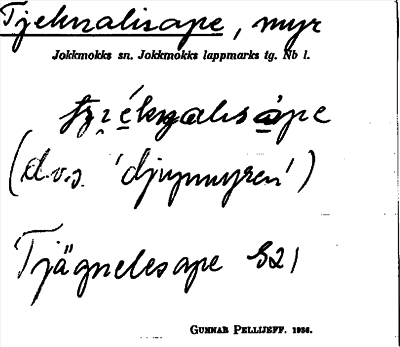 Tjeknalisape, myr
Jokkmokks sn. Jokkmokks lappmarks tg. Nb l.
(d.v.s. 'djupmyren')
Tjägnelesape S21
GUNNAR PELLIJEFF. 1936.